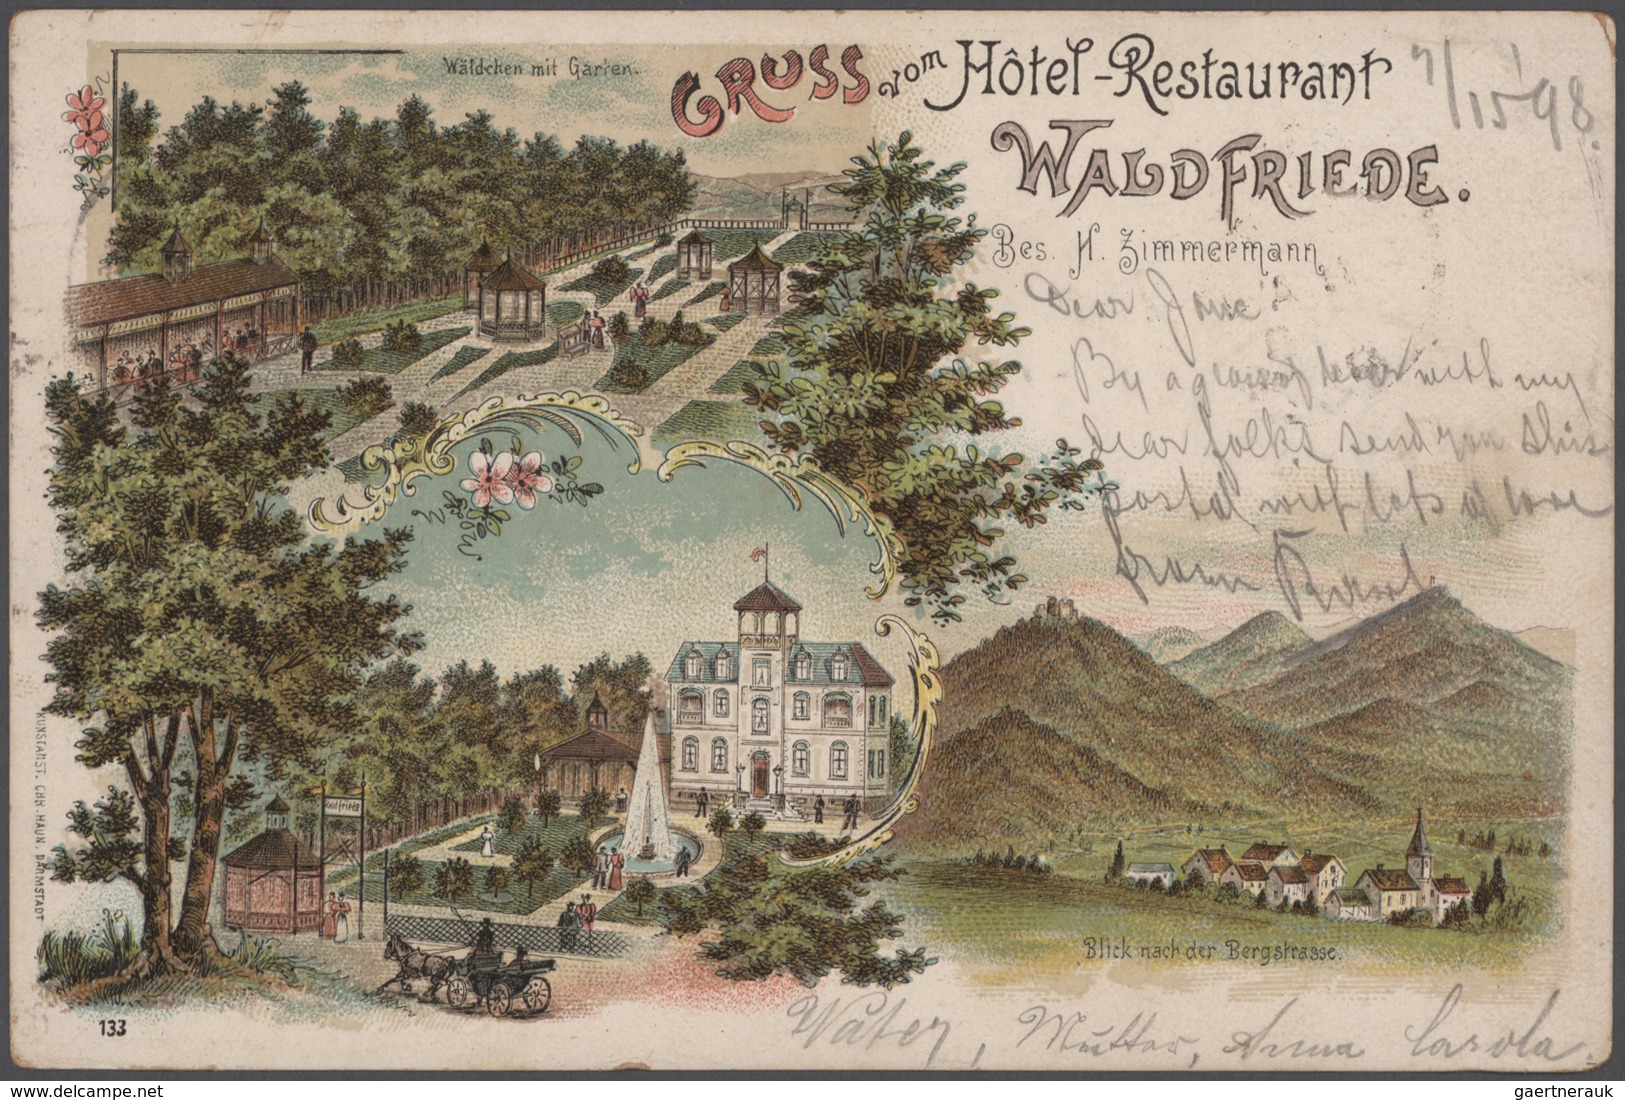 Wäldchen mit Garten.
GRUSS vom Hôtel-Restaurant
WALDFRIEDE.
Bes. H. Zimmermann
7/15 98.
Dear Jane!
By a glass of beer with my
dear folks send you this
postal with lots of love
from
Waldfriede
Blick nach der Bergstrasse.
Vater, Mutter, Anna Carola.
KUNSTANST. CHR. HAUN, DARMSTADT
133
gaertnerauk